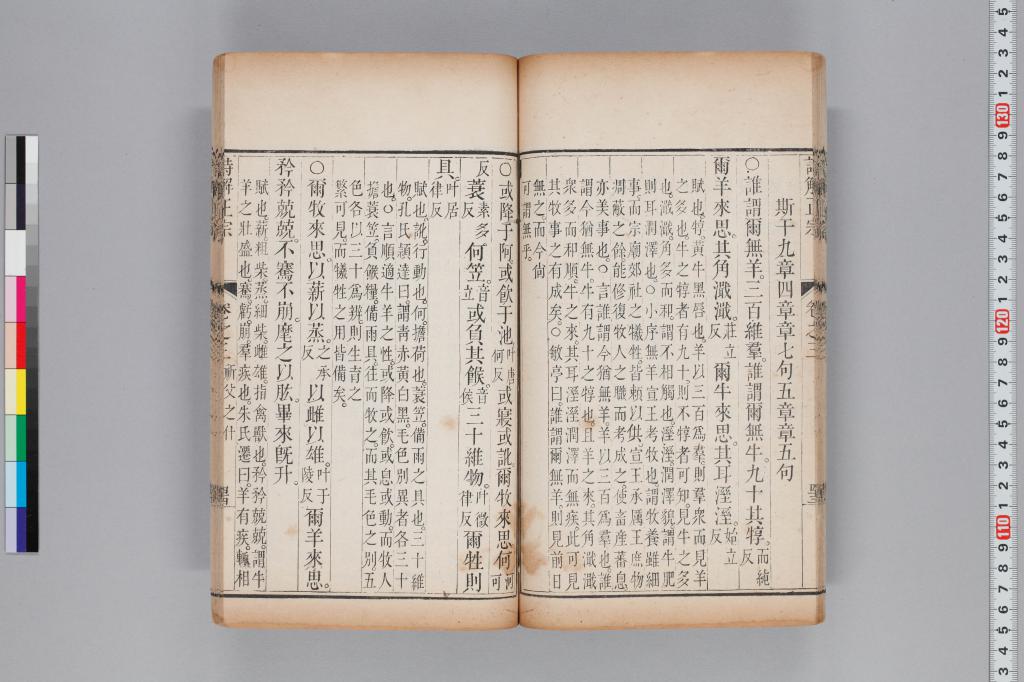 斯干九章四章章七句五章章五句
○誰謂爾無羊三百維羣誰謂爾無牛九十其犉而純反
爾羊來思其角濈濈莊立反爾牛來思其耳溼溼始立反
賦也犉黃牛黑唇也羊以三百爲羣則羣衆而見羊
之多也牛之犉者有九十則不犉者可知見牛之多
也濈濈角多而
則耳潤澤也○小序無羊宣王考牧也謂牧養雖細
事而宗廟郊社之犧牲皆賴以供宣王承厲王
凋敝之餘能修復牧人之職而考成之使畜產蕃息
亦美事也○言誰謂今猶無羊羊以三百爲羣也誰
謂今猶無牛牛有九十之犉也且羊之來其角濈濈
衆多而和順牛之來其耳溼溼潤澤而無疾此可見
其牧事之有成矣○敏亭曰誰謂爾無羊則見前日
無之而今
可謂無乎
○或降于阿或飲于池叶唐何反或寢或訛爾牧來思何河可
反蓑素多反何笠音立或負其餱音侯三十維物叶微律反爾牲則
具叶居律反
賦也訛行動也何擔荷也蓑笠備雨之具也三十維
物孔氏穎達曰謂青赤黃白黑毛色別異者各三十
也○言順適牛羊之性或降或飲或息或動而牧人
擔蓑笠負餱糧備雨具往而牧之而其毛色之別五
色各以三十爲辨則生育之
繁可見而犧牲之用皆備矣
○爾牧來思以薪以蒸之承反以雌以雄叶于陵反爾羊來思
矜矜兢兢不騫不崩麾之以肱畢來既升
賦也薪粗柴蒸細柴雌雄指禽獸也矜矜兢兢謂牛
羊之壯盛也騫虧崩羣疾也朱氏遷曰羊有疾輒相
詩解正宗
卷之二
祈父之什